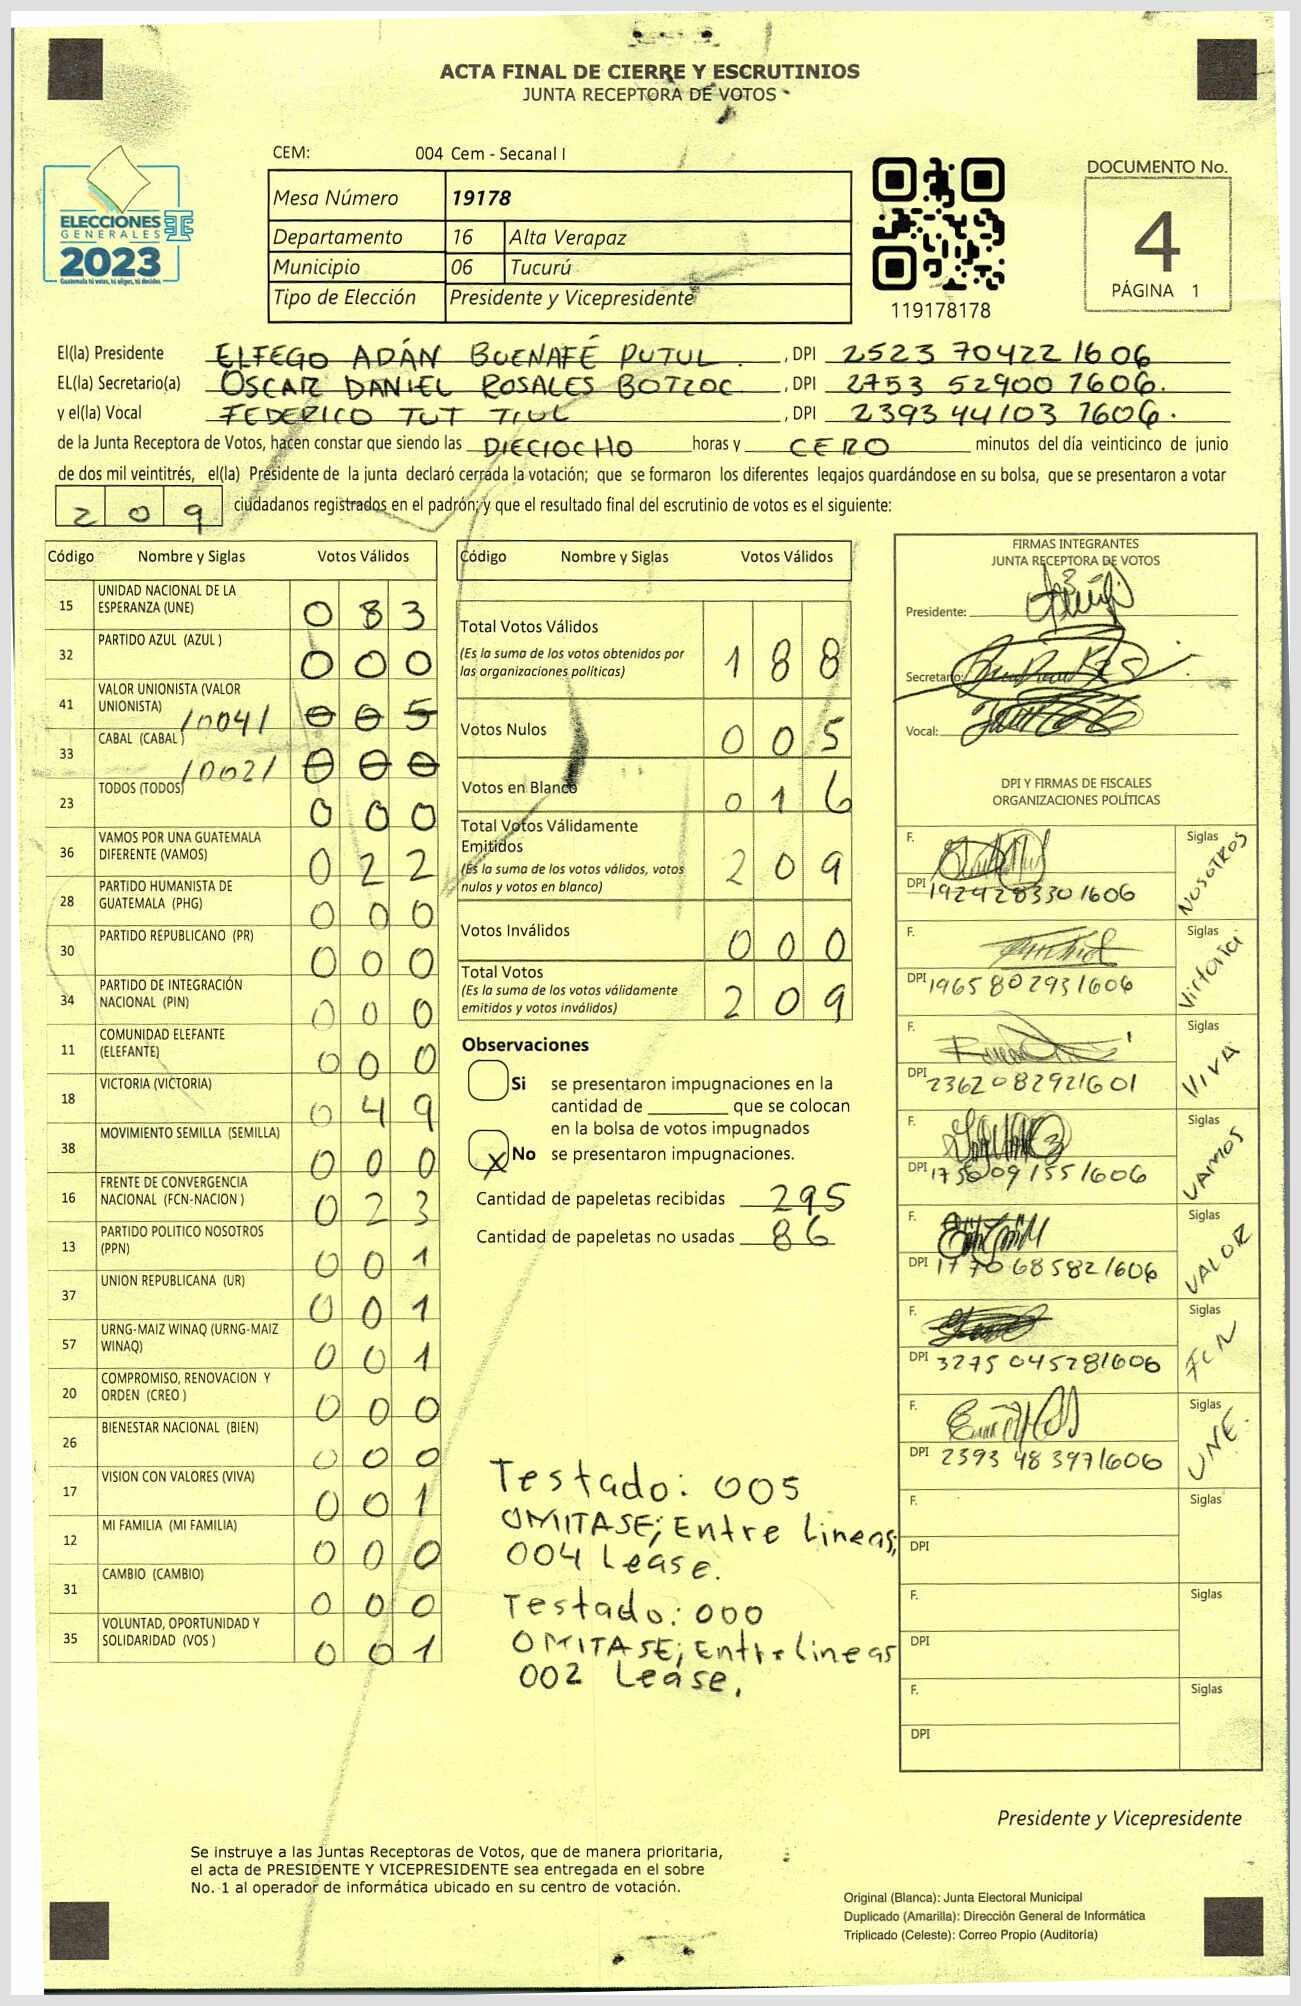 ACTA FINAL DE CIERRE Y ESCRUTINIOS
JUNTA RECEPTORA DE VOTOS
CEM: 004 Cem - Secanal I
DOCUMENTO No.
4
PÁGINA 1
ELECCIONES
GENERALES
2023
Guatemala tú votas, tú eliges, tú decides
Mesa Número 19178
Departamento 16 Alta Verapaz
Municipio 06 Tucurú
Tipo de Elección Presidente y Vicepresidente
119178178
El(la) Presidente ELFEGO ADÁN BUENAFÉ PUTUL. , DPI 2523 70422 1606
EL(la) Secretario(a) OSCAR DANIEL ROSALES BOTZOC , DPI 2753 52900 1606.
y el(la) Vocal FEDERICO TUT TIUL , DPI 2393 44103 1606.
de la Junta Receptora de Votos, hacen constar que siendo las DIECIOCHO horas y CERO minutos del día veinticinco de junio
de dos mil veintitrés, el(la) Presidente de la junta declaró cerrada la votación; que se formaron los diferentes legajos guardándose en su bolsa, que se presentaron a votar
209 ciudadanos registrados en el padrón; y que el resultado final del escrutinio de votos es el siguiente:
Código Nombre y Siglas Votos Válidos
15 UNIDAD NACIONAL DE LA ESPERANZA (UNE) 0 8 3
32 PARTIDO AZUL (AZUL ) 0 0 0
41 VALOR UNIONISTA (VALOR UNIONISTA) /004/ 0 0 5
33 CABAL (CABAL ) /002/ 0 0 0
23 TODOS (TODOS) 0 0 0
36 VAMOS POR UNA GUATEMALA DIFERENTE (VAMOS) 0 2 2
28 PARTIDO HUMANISTA DE GUATEMALA (PHG) 0 0 0
30 PARTIDO REPUBLICANO (PR) 0 0 0
34 PARTIDO DE INTEGRACIÓN NACIONAL (PIN) 0 0 0
11 COMUNIDAD ELEFANTE (ELEFANTE) 0 0 0
18 VICTORIA (VICTORIA) 0 4 9
38 MOVIMIENTO SEMILLA (SEMILLA) 0 0 0
16 FRENTE DE CONVERGENCIA NACIONAL (FCN-NACION ) 0 2 3
13 PARTIDO POLITICO NOSOTROS (PPN) 0 0 1
37 UNION REPUBLICANA (UR) 0 0 1
57 URNG-MAIZ WINAQ (URNG-MAIZ WINAQ) 0 0 1
20 COMPROMISO, RENOVACION Y ORDEN (CREO ) 0 0 0
26 BIENESTAR NACIONAL (BIEN) 0 0 0
17 VISION CON VALORES (VIVA) 0 0 1
12 MI FAMILIA (MI FAMILIA) 0 0 0
31 CAMBIO (CAMBIO) 0 0 0
35 VOLUNTAD, OPORTUNIDAD Y SOLIDARIDAD (VOS ) 0 0 1
Código Nombre y Siglas Votos Válidos
Total Votos Válidos 1 8 8
(Es la suma de los votos obtenidos por
las organizaciones políticas)
Votos Nulos 0 0 5
Votos en Blanco 0 1 6
Total Votos Válidamente
Emitidos 2 0 9
(Es la suma de los votos válidos, votos
nulos y votos en blanco)
Votos Inválidos 0 0 0
Total Votos 2 0 9
(Es la suma de los votos válidamente
emitidos y votos inválidos)
Observaciones
Si se presentaron impugnaciones en la
cantidad de ________ que se colocan
en la bolsa de votos impugnados
X No se presentaron impugnaciones.
Cantidad de papeletas recibidas 295
Cantidad de papeletas no usadas 86
Testado: 005
OMITASE; Entre lineas;
004 Lease.
Testado: 000
OMITASE; Entre lineas
002 Lease.
FIRMAS INTEGRANTES
JUNTA RECEPTORA DE VOTOS
Presidente:
Secretario:
Vocal:
DPI Y FIRMAS DE FISCALES
ORGANIZACIONES POLÍTICAS
F. Siglas NOSOTROS
DPI 192428330 1606
F. Siglas Victoria
DPI 1965802931606
F. Siglas VIVA
DPI 2362082921601
F. Siglas VAMOS
DPI 1750091551606
F. Siglas VALOR
DPI 1770685821606
F. Siglas FCN
DPI 3275045281606
F. Siglas UNE.
DPI 2393483971606
F. Siglas
DPI
F. Siglas
DPI
F. Siglas
DPI
Presidente y Vicepresidente
Se instruye a las Juntas Receptoras de Votos, que de manera prioritaria,
el acta de PRESIDENTE Y VICEPRESIDENTE sea entregada en el sobre
No. 1 al operador de informática ubicado en su centro de votación.
Original (Blanca): Junta Electoral Municipal
Duplicado (Amarilla): Dirección General de Informática
Triplicado (Celeste): Correo Propio (Auditoría)